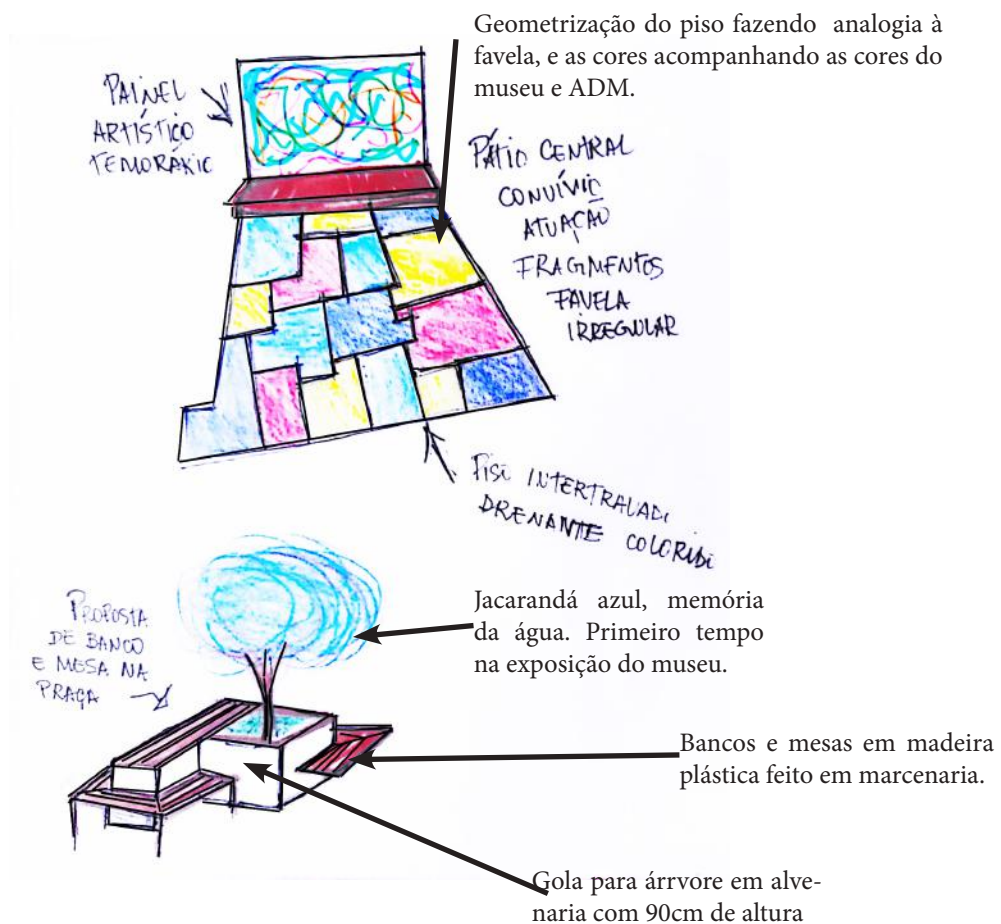 Geometrização do piso fazendo analogia à
favela, e as cores acompanhando as cores do
museu e ADM.
PAINEL
ARTÍSTICO
TEMORÁRIO
PÁTIO CENTRAL
CONVÍVIO
ATUAÇÃO
FRAGMENTOS
FAVELA
IRREGULAR
PISO INTERTRAVADO
DRENANTE COLORIDO
PROPOSTA
DE BANCO
E MESA NA
PRAÇA
Jacarandá azul, memória
da água. Primeiro tempo
na exposição do museu.
Bancos e mesas em madeira
plástica feito em marcenaria.
Gola para árrvore em alve-
naria com 90cm de altura